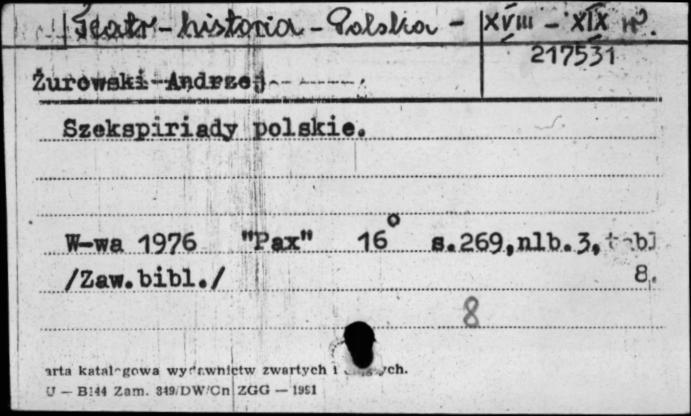 Teatr - historia - Polska - XVIII - XIX w.
217531
Żurowski Andrzej
Szekspiriady polskie.
W-wa 1976 "Pax" 16° s.269,nlb.3, tabl
/Zaw.bibl./ 8.
8
arta katalogowa wydawnictw zwartych i ych.
U — B144 Zam. 349/DW/Cn ZGG — 1951